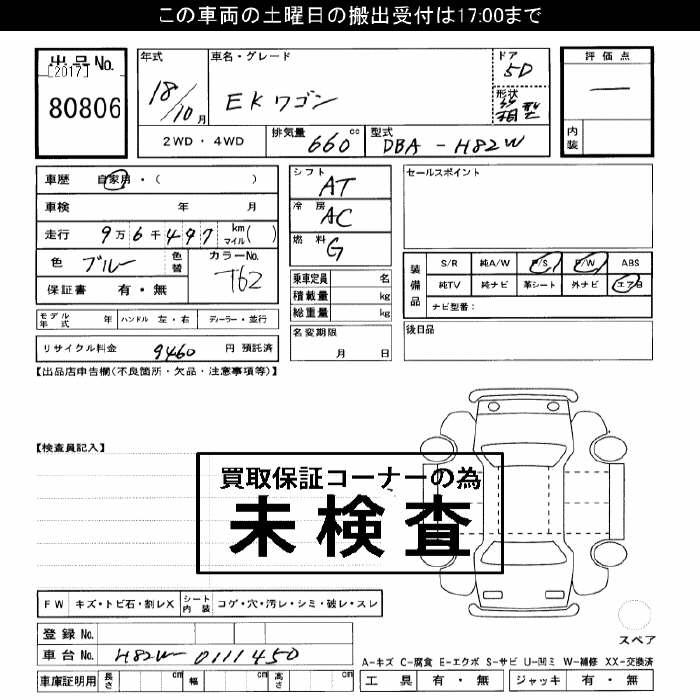 この車両の土曜日の搬出受付は17:00まで
出品No.
[2017]
80806
年式
18/10月
車名・グレード
EKワゴン
ドア
5D
形状
箱型
評価点
—
内装
2WD・4WD
排気量
660cc
型式
DBA-H82W
車歴 自家用・( )
車検 年 月
走行 9万6千497 km マイル( )
色 ブルー 色替
カラーNo.
T62
保証書 有・無
シフト
AT
冷房
AC
燃料
G
乗車定員 名
積載量 kg
総重量 kg
名変期限
月 日
セールスポイント
装備品
S/R 純A/W P/S P/W ABS
純TV 純ナビ 革シート 外ナビ エアB
ナビ型番:
後日品
モデル年式 年 ハンドル 左・右 ディーラー・並行
リサイクル料金 9460 円 預託済
【出品店申告欄(不良箇所・欠品・注意事項等)】
【検査員記入】
買取保証コーナーの為
未検査
FW キズ・トビ石・割レX シート内装 コゲ・穴・汚レ・シミ・破レ・スレ
登録No.
車台No. H82W-0111450
車庫証明用 長さ cm 幅 cm 高さ cm
スペア
A-キズ C-腐食 E-エクボ S-サビ U-凹ミ W-補修 XX-交換済
工具 有・無 ジャッキ 有・無